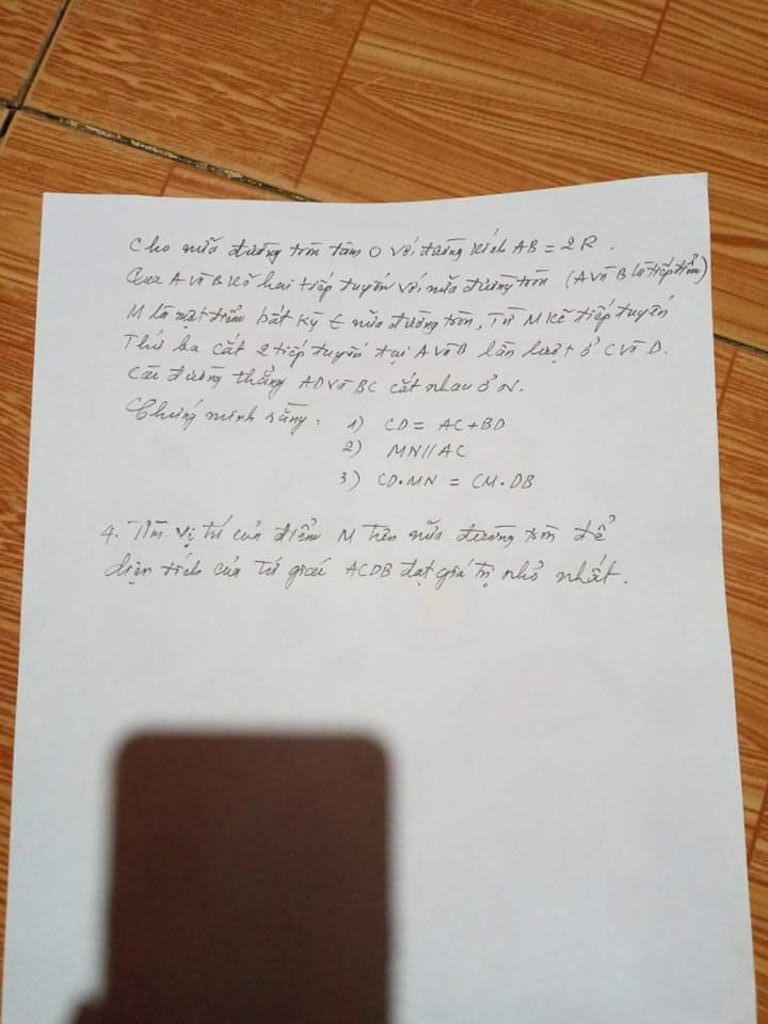 Cho nửa đường tròn tâm O với đường kính AB = 2R.
Qua A và B kẻ hai tiếp tuyến với nửa đường tròn (A và B là tiếp điểm)
M là một điểm bất kỳ ∈ nửa đường tròn, Từ M kẻ tiếp tuyến
Thứ ba cắt 2 tiếp tuyến tại A và B lần lượt ở C và D.
Các đường thẳng AD và BC cắt nhau ở N.
Chứng minh rằng: 1) CD = AC + BD
2) MN // AC
3) CD.MN = CM.DB
4. Tìm vị trí của điểm M trên nửa đường tròn để
diện tích của tứ giác ACDB đạt giá trị nhỏ nhất.